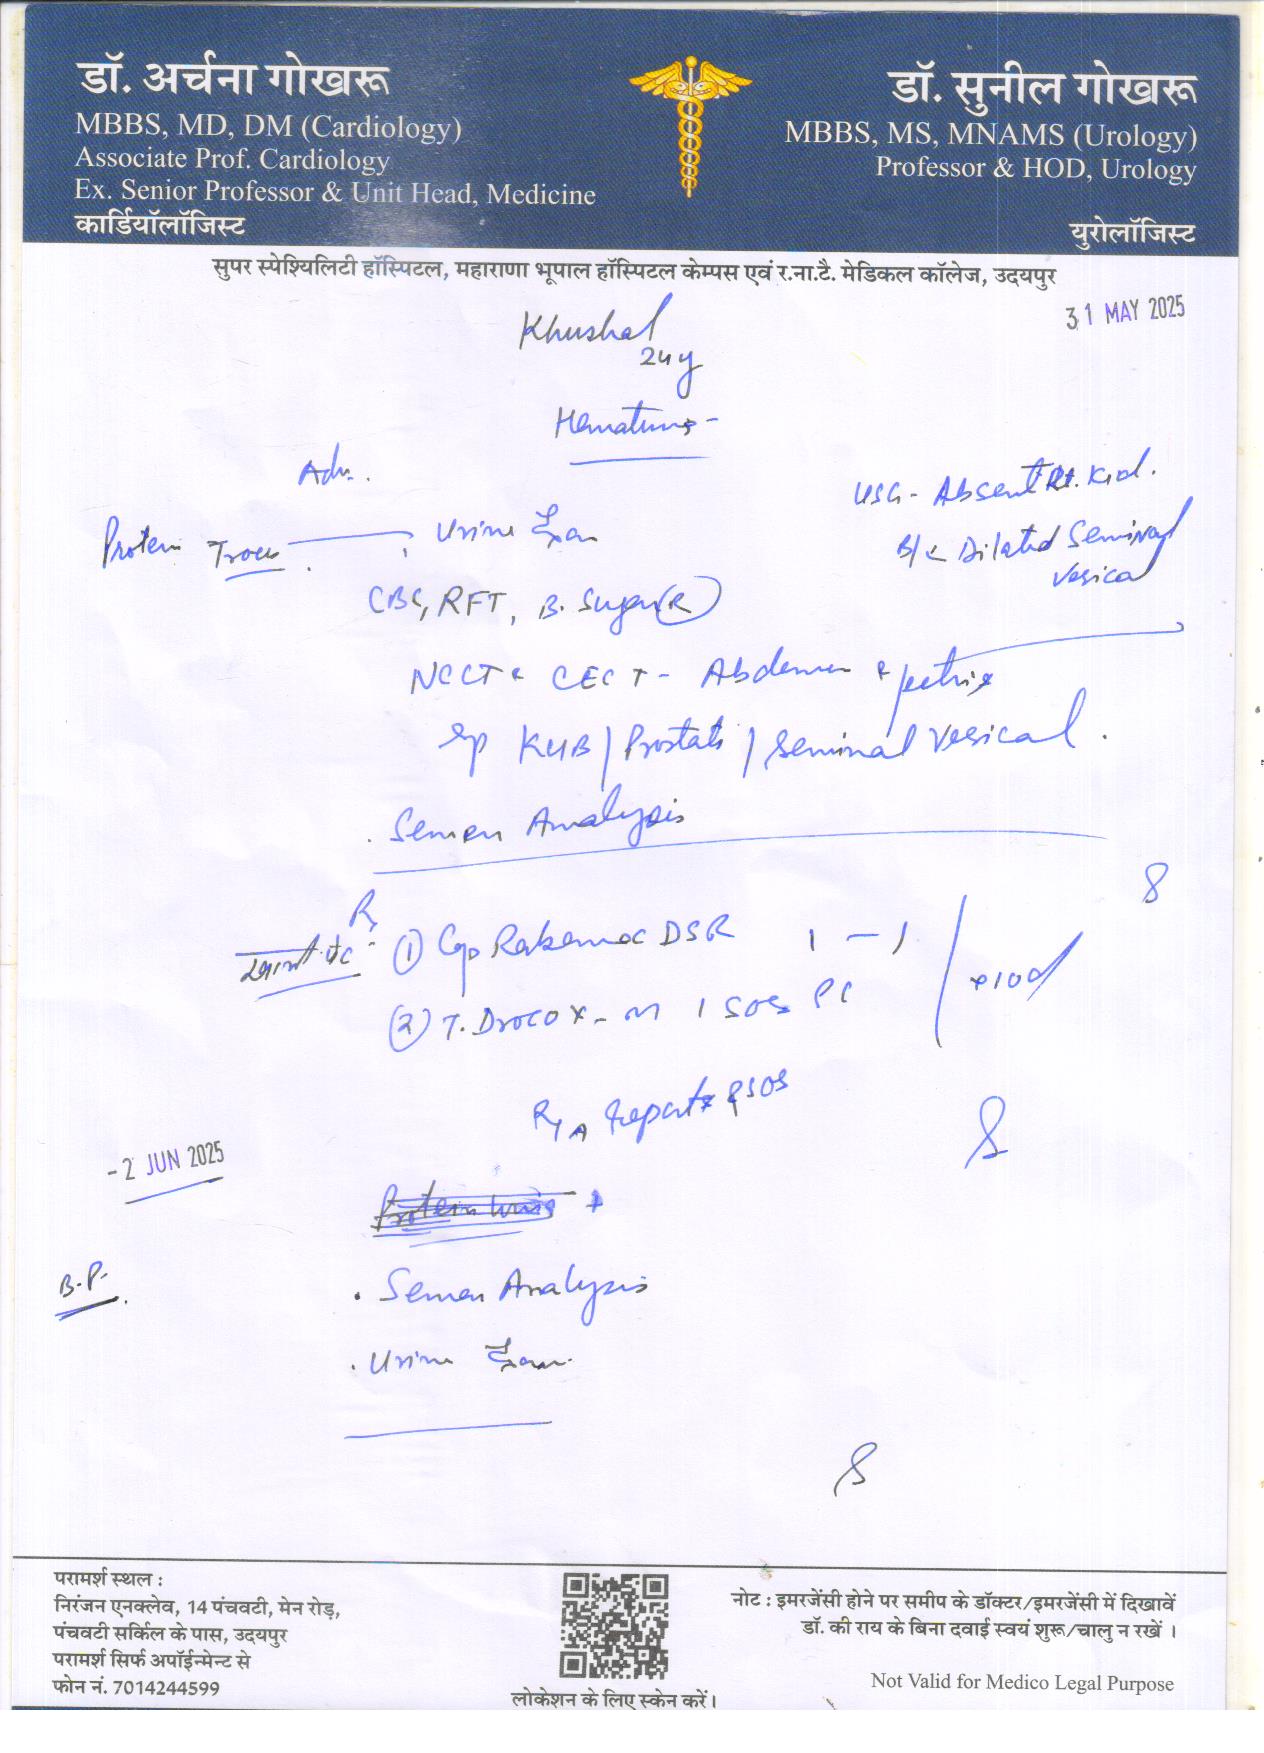 डॉ. अर्चना गोखरू
MBBS, MD, DM (Cardiology)
Associate Prof. Cardiology
Ex. Senior Professor & Unit Head, Medicine
कार्डियॉलॉजिस्ट
डॉ. सुनील गोखरू
MBBS, MS, MNAMS (Urology)
Professor & HOD, Urology
युरोलॉजिस्ट
सुपर स्पेश्यिलिटी हॉस्पिटल, महाराणा भूपाल हॉस्पिटल केम्पस एवं र.ना.टै. मेडिकल कॉलेज, उदयपुर
31 MAY 2025
Khushal
24y
Adv.
USG - Absent Rt. Kid.
B/L Dilated Seminal
Vesical
Protein Trace
Urine Exam
CBC, RFT, B. Sugar (R)
NCCT & CECT - Abdomen &
KUB / Prostate / Seminal Vesical.
. Semen Analysis
R
(1) Cap DSR 1 - 1
(2) T. Drocox-M 1 SOS PC
x10d
R/A Report & SOS
-2 JUN 2025
B.P.
. Semen Analysis
. Urine Exam
परामर्श स्थल :
निरंजन एनक्लेव, 14 पंचवटी, मेन रोड़,
पंचवटी सर्किल के पास, उदयपुर
परामर्श सिर्फ अपॉईन्मेन्ट से
फोन नं. 7014244599
लोकेशन के लिए स्केन करें।
नोट : इमरजेंसी होने पर समीप के डॉक्टर/इमरजेंसी में दिखावें
डॉ. की राय के बिना दवाई स्वयं शुरू/चालु न रखें ।
Not Valid for Medico Legal Purpose